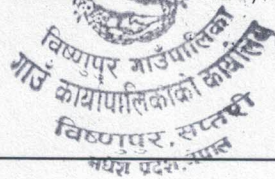 विष्णुपुर गाउँपालिका
गाउँ कार्यापालिकाको कार्यालय
विष्णुपुर, सप्तरी
मधेश प्रदेश, नेपाल